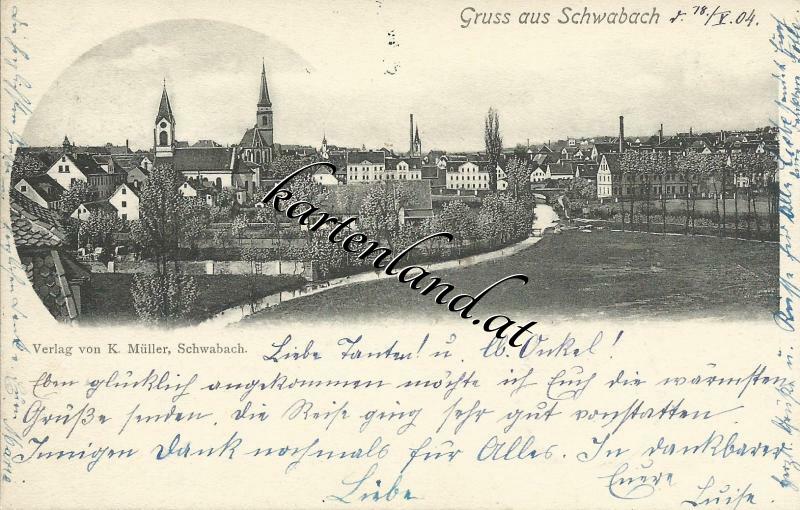 Gruss aus Schwabach d. 18./V.04.
kartenland.at
Verlag von K. Müller, Schwabach.
Liebe Tanten! u. lb. Onkel!
Eben glücklich angekommen möchte ich Euch die wärmsten
Grüße senden. Die Reise ging sehr gut vonstatten.
Innigen Dank nochmals für Alles. In dankbarer
Liebe Euere
Luise.